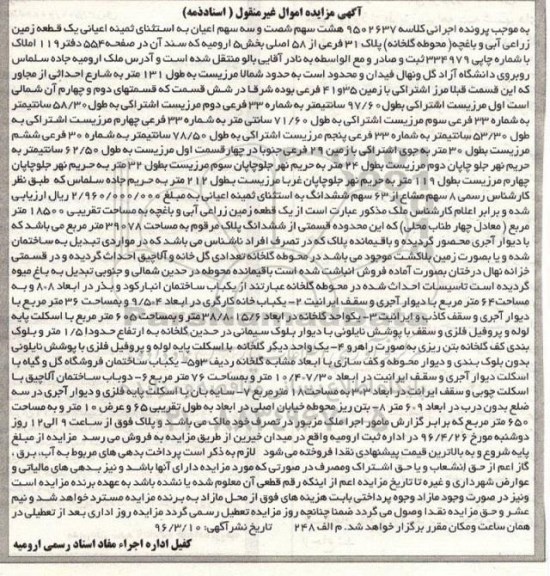 آگهی مزایده اموال غیرمنقول ( اسنادذمه)
به موجب پرونده اجرائی کلاسه ۹۵۰۲۶۳۷ هشت سهم شصت و سه سهم اعیان به استثنای ثمینه اعیانی یک قطعه زمین
زراعی آبی و باغچه( محوطه گلخانه) پلاک ۳۱ فرعی از ۵۸ اصلی بخش۵ ارومیه که سند آن در صفحه۵۵۴ دفتر۱۱۹ املاک
با شماره چاپی ۳۳۴۹۷۹ ثبت و صادر و مع الواسطه به نادر آقایی بالو منتقل شده است و آدرس ملک ارومیه جاده سلماس
روبروی دانشگاه آزاد گل ونهال فیدان و محدود است به حدود شمالا مرزیست به طول ۱۳۱ متر به شارع احداثی از مجاور
که این قسمت قبلا مرز اشتراکی با زمین ۳۵و۴۱ فرعی بوده شرقا در شش قسمت که قسمتهای دوم و چهارم آن شمالی
است اول مرزیست اشتراکی بطول ۹۷/۶۰ سانتیمتر به شماره ۳۳ فرعی دوم مرزیست اشتراکی به طول ۵۸/۳۰ سانتیمتر
به شماره ۳۳ فرعی سوم مرزیست اشتراکی به طول ۷۱/۶۰ سانتی متر به شماره ۳۳ فرعی چهارم مرزیست اشتراکی به
طول ۵۳/۳۰ سانتیمتر به شماره ۳۳ فرعی پنجم مرزیست اشتراکی به طول ۷۸/۵۰ سانتیمتر به شماره ۳۰ فرعی ششم
مرزیست بطول ۳۰ متر به جوی اشتراکی با زمین ۲۹ فرعی جنوبا در چهارقسمت اول مرزیست به طول ۶۲/۵۰ سانتیمتر به
حریم نهر جلو چاپان دوم مرزیست بطول ۲۴ متر به حریم نهر جلوچاپان سوم مرزیست بطول ۳۲ متر به حریم نهر جلوچاپان
چهارم مرزیست بطول ۱۱۹ متر به حریم نهر جلوچاپان غربا مرزیست بطول ۲۱۲ متر به حریم جاده سلماس که طبق نظر
کارشناس رسمی ۸ سهم مشاع از۶۳ سهم ششدانگ به استثنای ثمینه اعیانی به مبلغ ۲/۹۶۰/۰۰۰/۰۰۰ ریال ارزیابی
شده و برابر اعلام کارشناس ملک مذکور عبارت است از یک قطعه زمین زراعی آبی و باغچه به مساحت تقریبی ۱۸۵۰۰ متر
مربع ( معادل چهار طناب محلی) که این محدوده قسمتی از ششدانگ پلاک مرقوم به مساحت ۳۹۰۷۸ متر مربع می باشد که
با دیوار آجری محصور گردیده و باقیمانده پلاک که در تصرف افراد ناشناس می باشد که در مواردی تبدیل به ساختمان
شده و یا بصورت زمین بلاکشت موجود می باشد در محوطه گلخانه تعدادی گل خانه و آلاچیق احداث گردیده و در قسمتی
خزانه نهال درختان بصورت آماده فروش انباشت شده است باقیمانده محوطه در حدین شمالی و جنوبی تبدیل به باغ میوه
گردیده است تاسیسات احداث شده در محوطه گلخانه عبارتند از یکباب ساختمان انبارکود و بذر در ابعاد ۸*۸ و به
مساحت۶۴ متر مربع با دیوار آجری و سقف ایرانیت ۲- یکباب خانه کارگری در ابعاد ۴*۹/۵ و بمساحت ۳۶ متر مربع با
دیوار آجری و سقف کاذب و ایرانیت۳- یکواحد گلخانه در ابعاد ۱۵/۶*۳۸/۸ متر وبمساحت ۶۰۵ متر مربع با اسکلت پایه
لوله و پروفیل فلزی و سقف با پوشش نایلونی با دیوار بلوک سیمانی در حدین گلخانه به ارتفاع حدودا ۱/۵ متر و بلوک
بندی کف گلخانه بتن ریزی به صورت راهرو ۴- یک واحد دیگر گلخانه با اسکلت پایه لوله و پروفیل فلزی با پوشش نایلونی
بدون بلوک بندی و دیوار محوطه و کف سازی با ابعاد مشابه گلخانه ردیف ۳و۵- یکباب ساختمان فروشگاه گل و گیاه با
اسکلت دیوار آجری و سقف ایرانیت در ابعاد ۷/۳۰*۱۰/۴ متر و بمساحت ۷۶ متر مربع ۶- دوباب ساختمان آلاچیق با
اسکلت چوبی و سقف ایرانیت در ابعاد ۳*۳ به مساحت۱۸ متر مربع ۷- سایه بان با اسکلت پایه فلزی و دیوار آجری در سه
ضلع بدون درب در ابعاد ۹*۶ متر ۸- بتن ریز محوطه خیابان اصلی در ابعاد به طول تقریبی ۶۵ و عرض ۱۰ متر و به مساحت
۶۵۰ متر مربع که برابر گزارش مامور اجرا املاک مزبور در تصرف مالک می باشد و پلاک فوق از ساعت ۹ الی۱۲ روز
دوشنبه مورخ ۹۶/۴/۲۶ در اداره ثبت ارومیه واقع در میدان خیرین از طریق مزایده به فروش می رسد مزایده از مبلغ
پایه شروع و به بالاترین قیمت پیشنهادی نقدا فروخته می شود لازم به ذکر است پرداخت بدهی های مربوط به آب، برق ،
گاز اعم از حق انشعاب و یا حق اشتراک ومصرف در صورتی که مورد مزایده دارای آنها باشد و نیز بدهی های مالیاتی و
عوارض شهرداری و غیره تا تاریخ مزایده اعم از اینکه رقم قطعی آن معلوم شده یا نشده باشد به عهده برنده مزایده است
ونیز در صورت وجود مازاد وجوه پرداختی بابت هزینه های فوق از محل مازاد به برنده مزایده مسترد خواهد شد و نیم
عشر و حق مزایده نقدا وصول می گردد ضمنا چنانچه روز مزایده تعطیل رسمی گردد مزایده روز اداری بعد از تعطیلی در
همان ساعت ومکان مقرر برگزار خواهد شد. م الف ۲۴۸ تاریخ نشر آگهی: ۹۶/۳/۱۰
کفیل اداره اجراء مفاد اسناد رسمی ارومیه